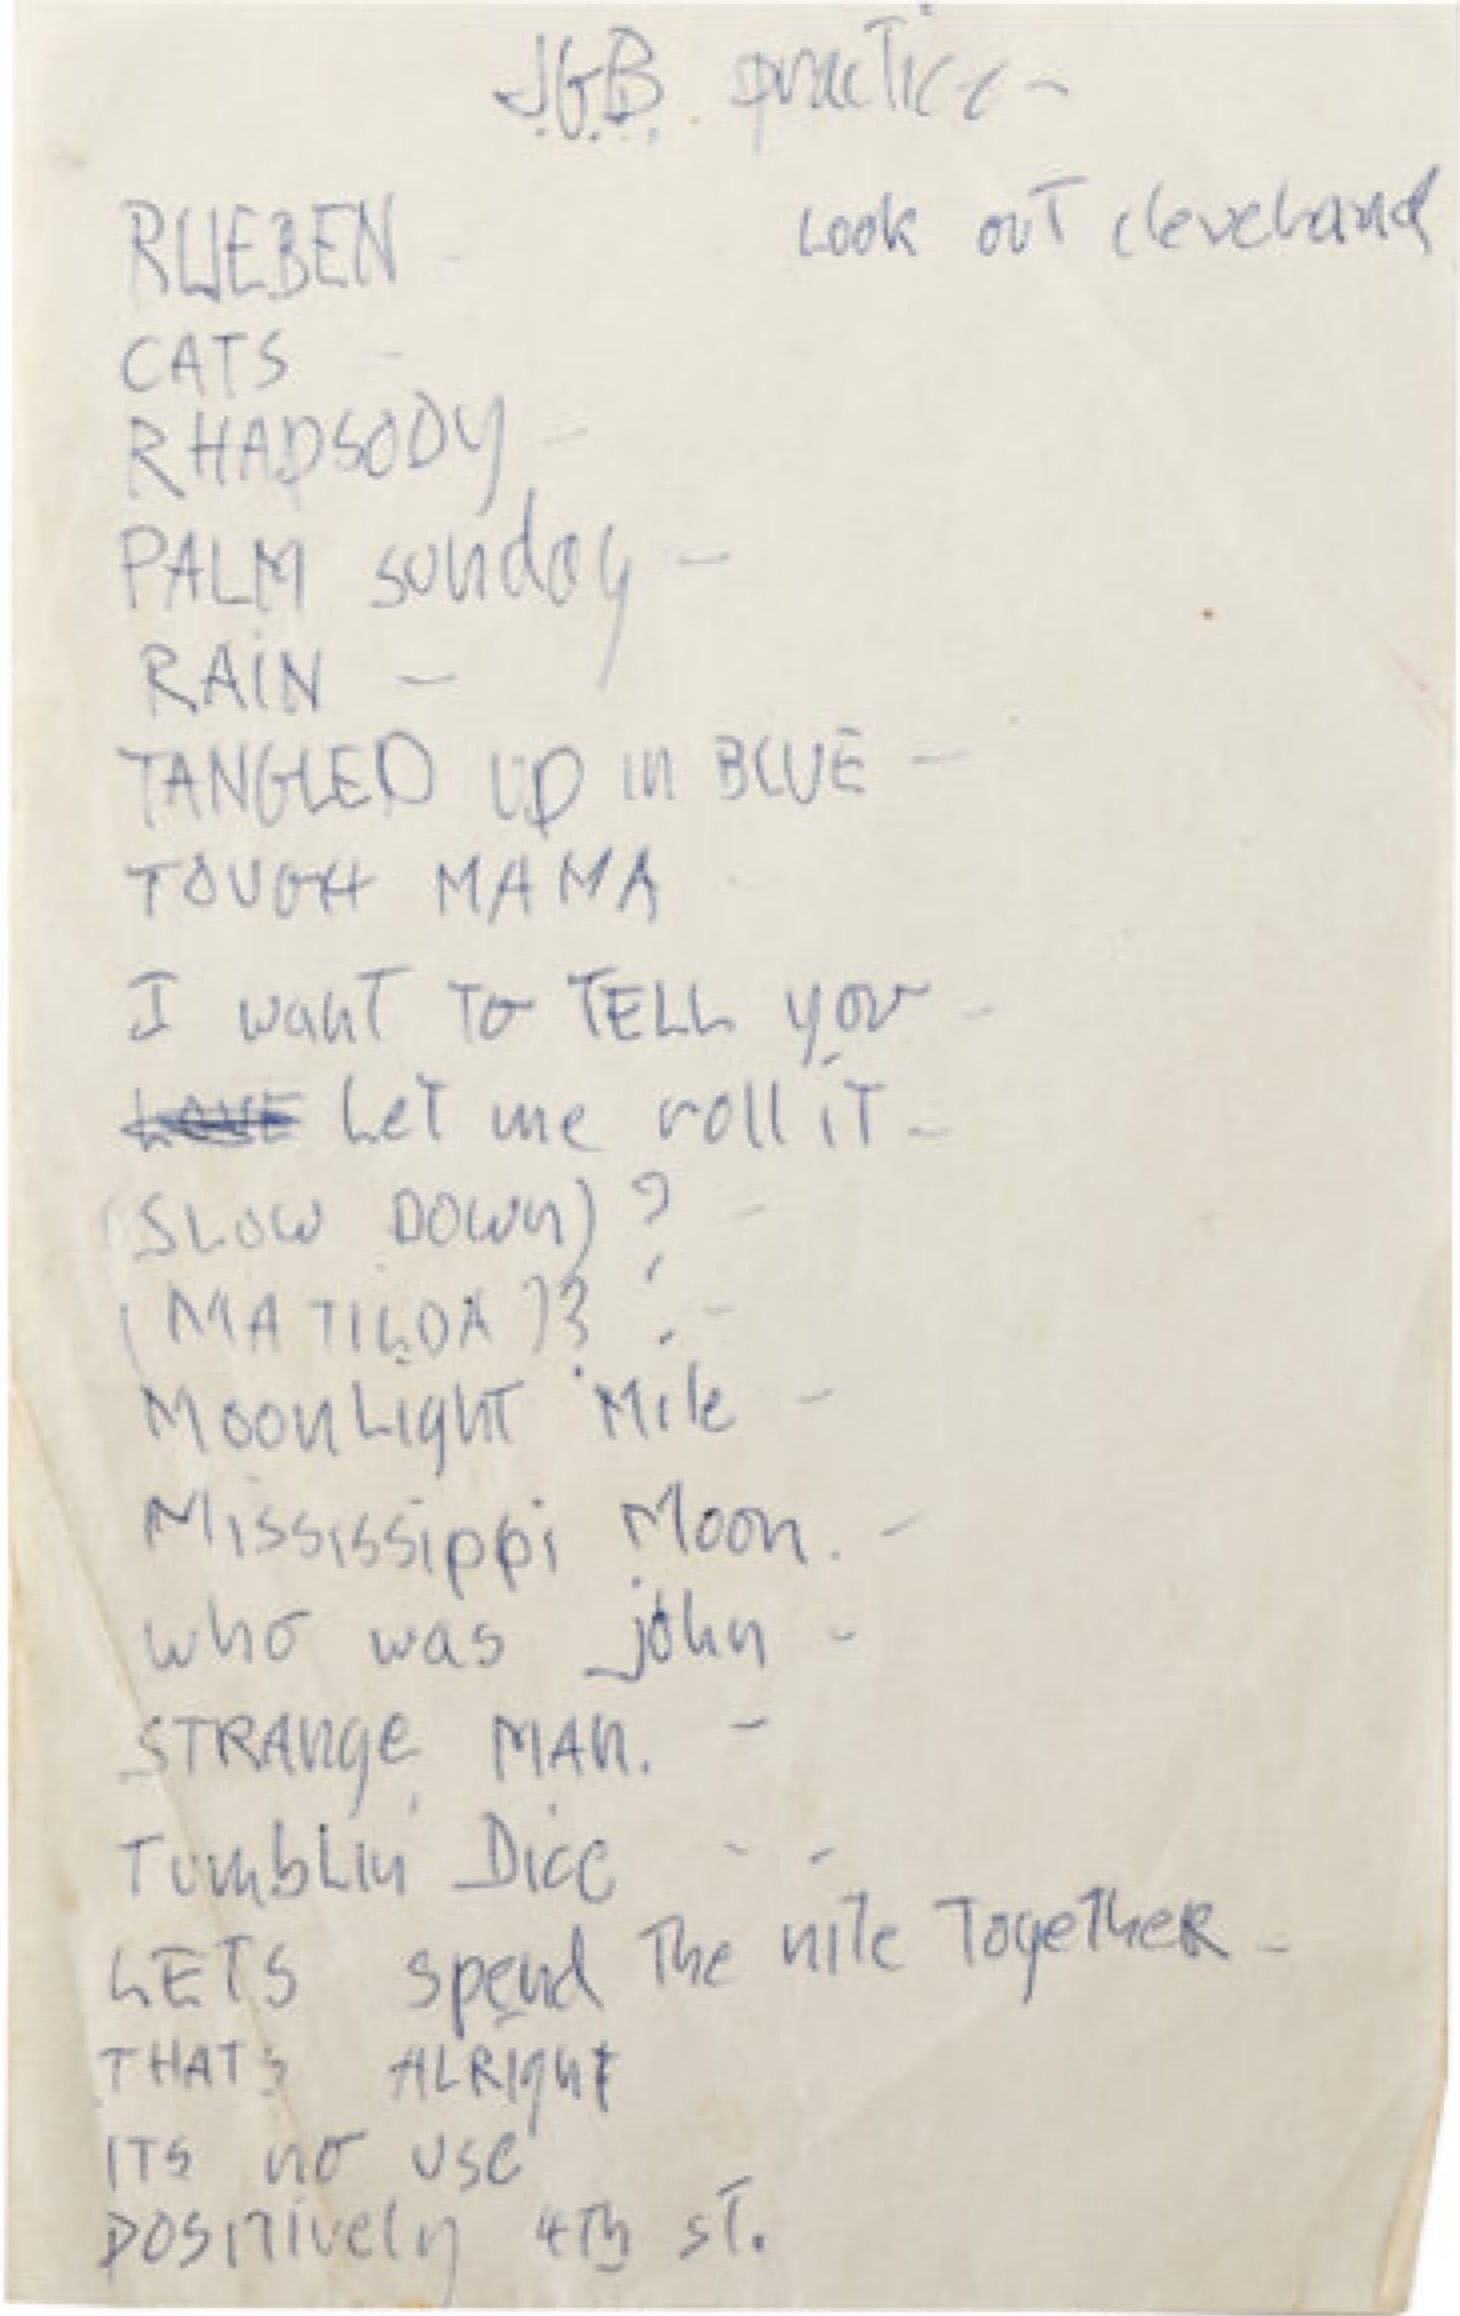 J.G.B. practice -
RUEBEN - Look out cleveland
CATS -
RHAPSODY -
PALM sunday -
RAIN -
TANGLED UP in BLUE -
TOUGH MAMA -
I want To TELL you -
Let me roll iT -
(SLOW DOWn) ? -
(MATILDA)? -
MoonLight Mile -
Mississippi Moon. -
who was john -
STRAnge MAn. -
TumbLin' Dice - -
LETS spend The nite TogeTheR -
THATS ALRIghT
ITS no use
POSiTively 4Th sT.